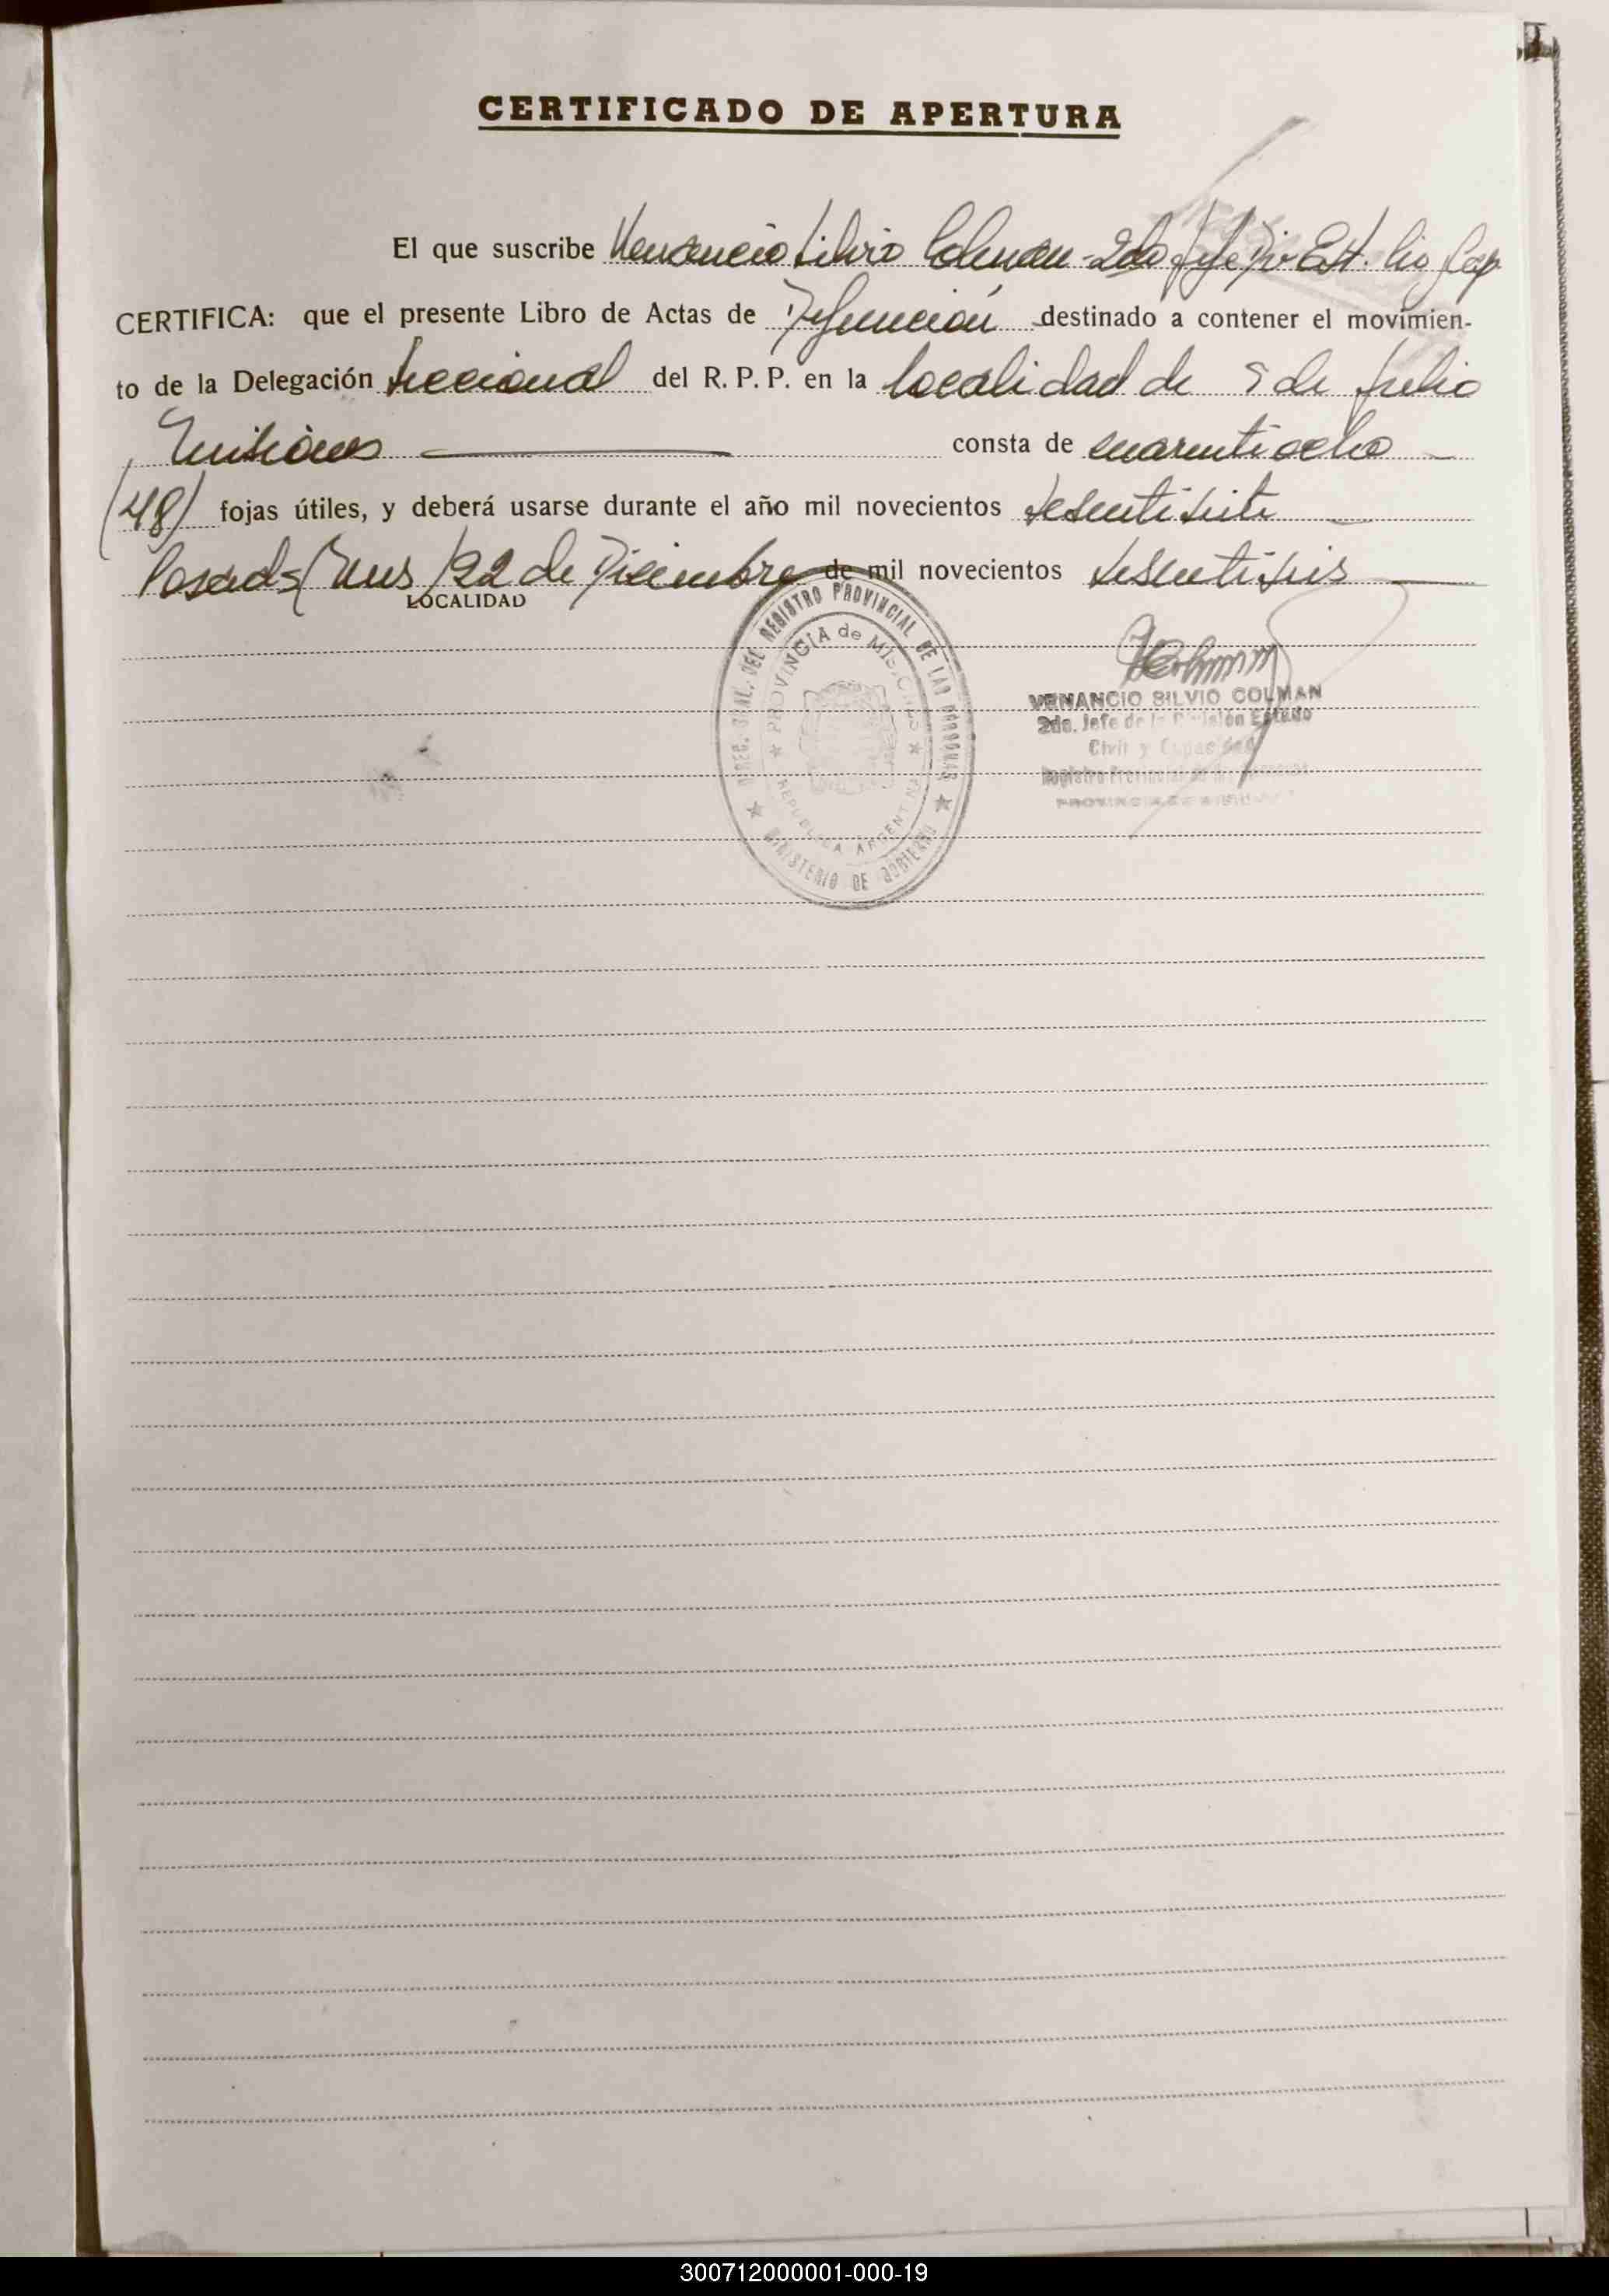 CERTIFICADO DE APERTURA
El que suscribe Venancio Silvio Colman - 2do Jefe Div Est. Civ Cap
CERTIFICA: que el presente Libro de Actas de Defunción destinado a contener el movimien-
to de la Delegación Seccional del R. P. P. en la localidad de 9 de Julio
Misiones consta de cuarentiocho
(48) fojas útiles, y deberá usarse durante el año mil novecientos sesentisiete
Posadas (Mnes) 22 de Diciembre de mil novecientos sesentiseis
LOCALIDAD
DIREC. GRAL. DEL REGISTRO PROVINCIAL DE LAS PERSONAS
PROVINCIA de MISIONES
REPUBLICA ARGENTINA
MINISTERIO DE GOBIERNO
VENANCIO SILVIO COLMAN
2do. Jefe de la División Estado
Civil y Capacidad
Registro Provincial de las Personas
PROVINCIA DE MISIONES
300712000001-000-19